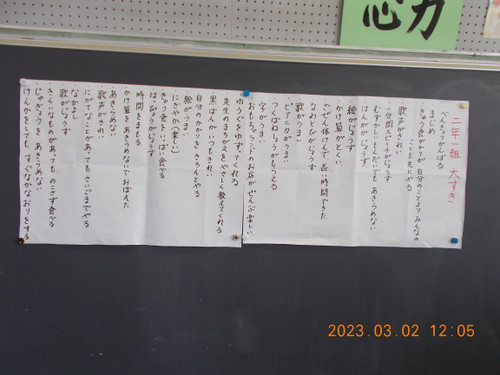 心力
二年一組 大すき
べんきょうがんばる
まじめ
きゅう食とうばんが 自分のことよりみんなの
ことを先にやる
歌声がきれい
一分間スピーチがじょうず
むずかしいもんだいでも あきらめない
けんばんがじょうず
絵がじょうず
かけ算がとくい
ごぜん体けんで長い時間できた
なわとびがじょうず
ピアニカがうまい
歌がうまい
つくばねしょうがもらえる
字がうまい
おもちゃランドのお店がぜんぶ楽しい
ゆうきある、すててくれる
先生のまちがえをやさしく教えてくれる
黒ばんがいつもきれい
自分のかかりをきちんとやる
絵がうまい
にぎやか(楽しい)
きゅう食をいっぱい食べる
はっぴょうがじょうず
時間をまもる
かけ算をあきらめないでおぼえた
あきらめない
歌声がきれい
にがてなことがあってもさいごまでやる
なかよし
歌がじょうず
きらいなものがあっても のこさず食べる
じゅぎょうを あきらめない
けんかをしても、すぐなかなおりをする
2023.03.02 12:05